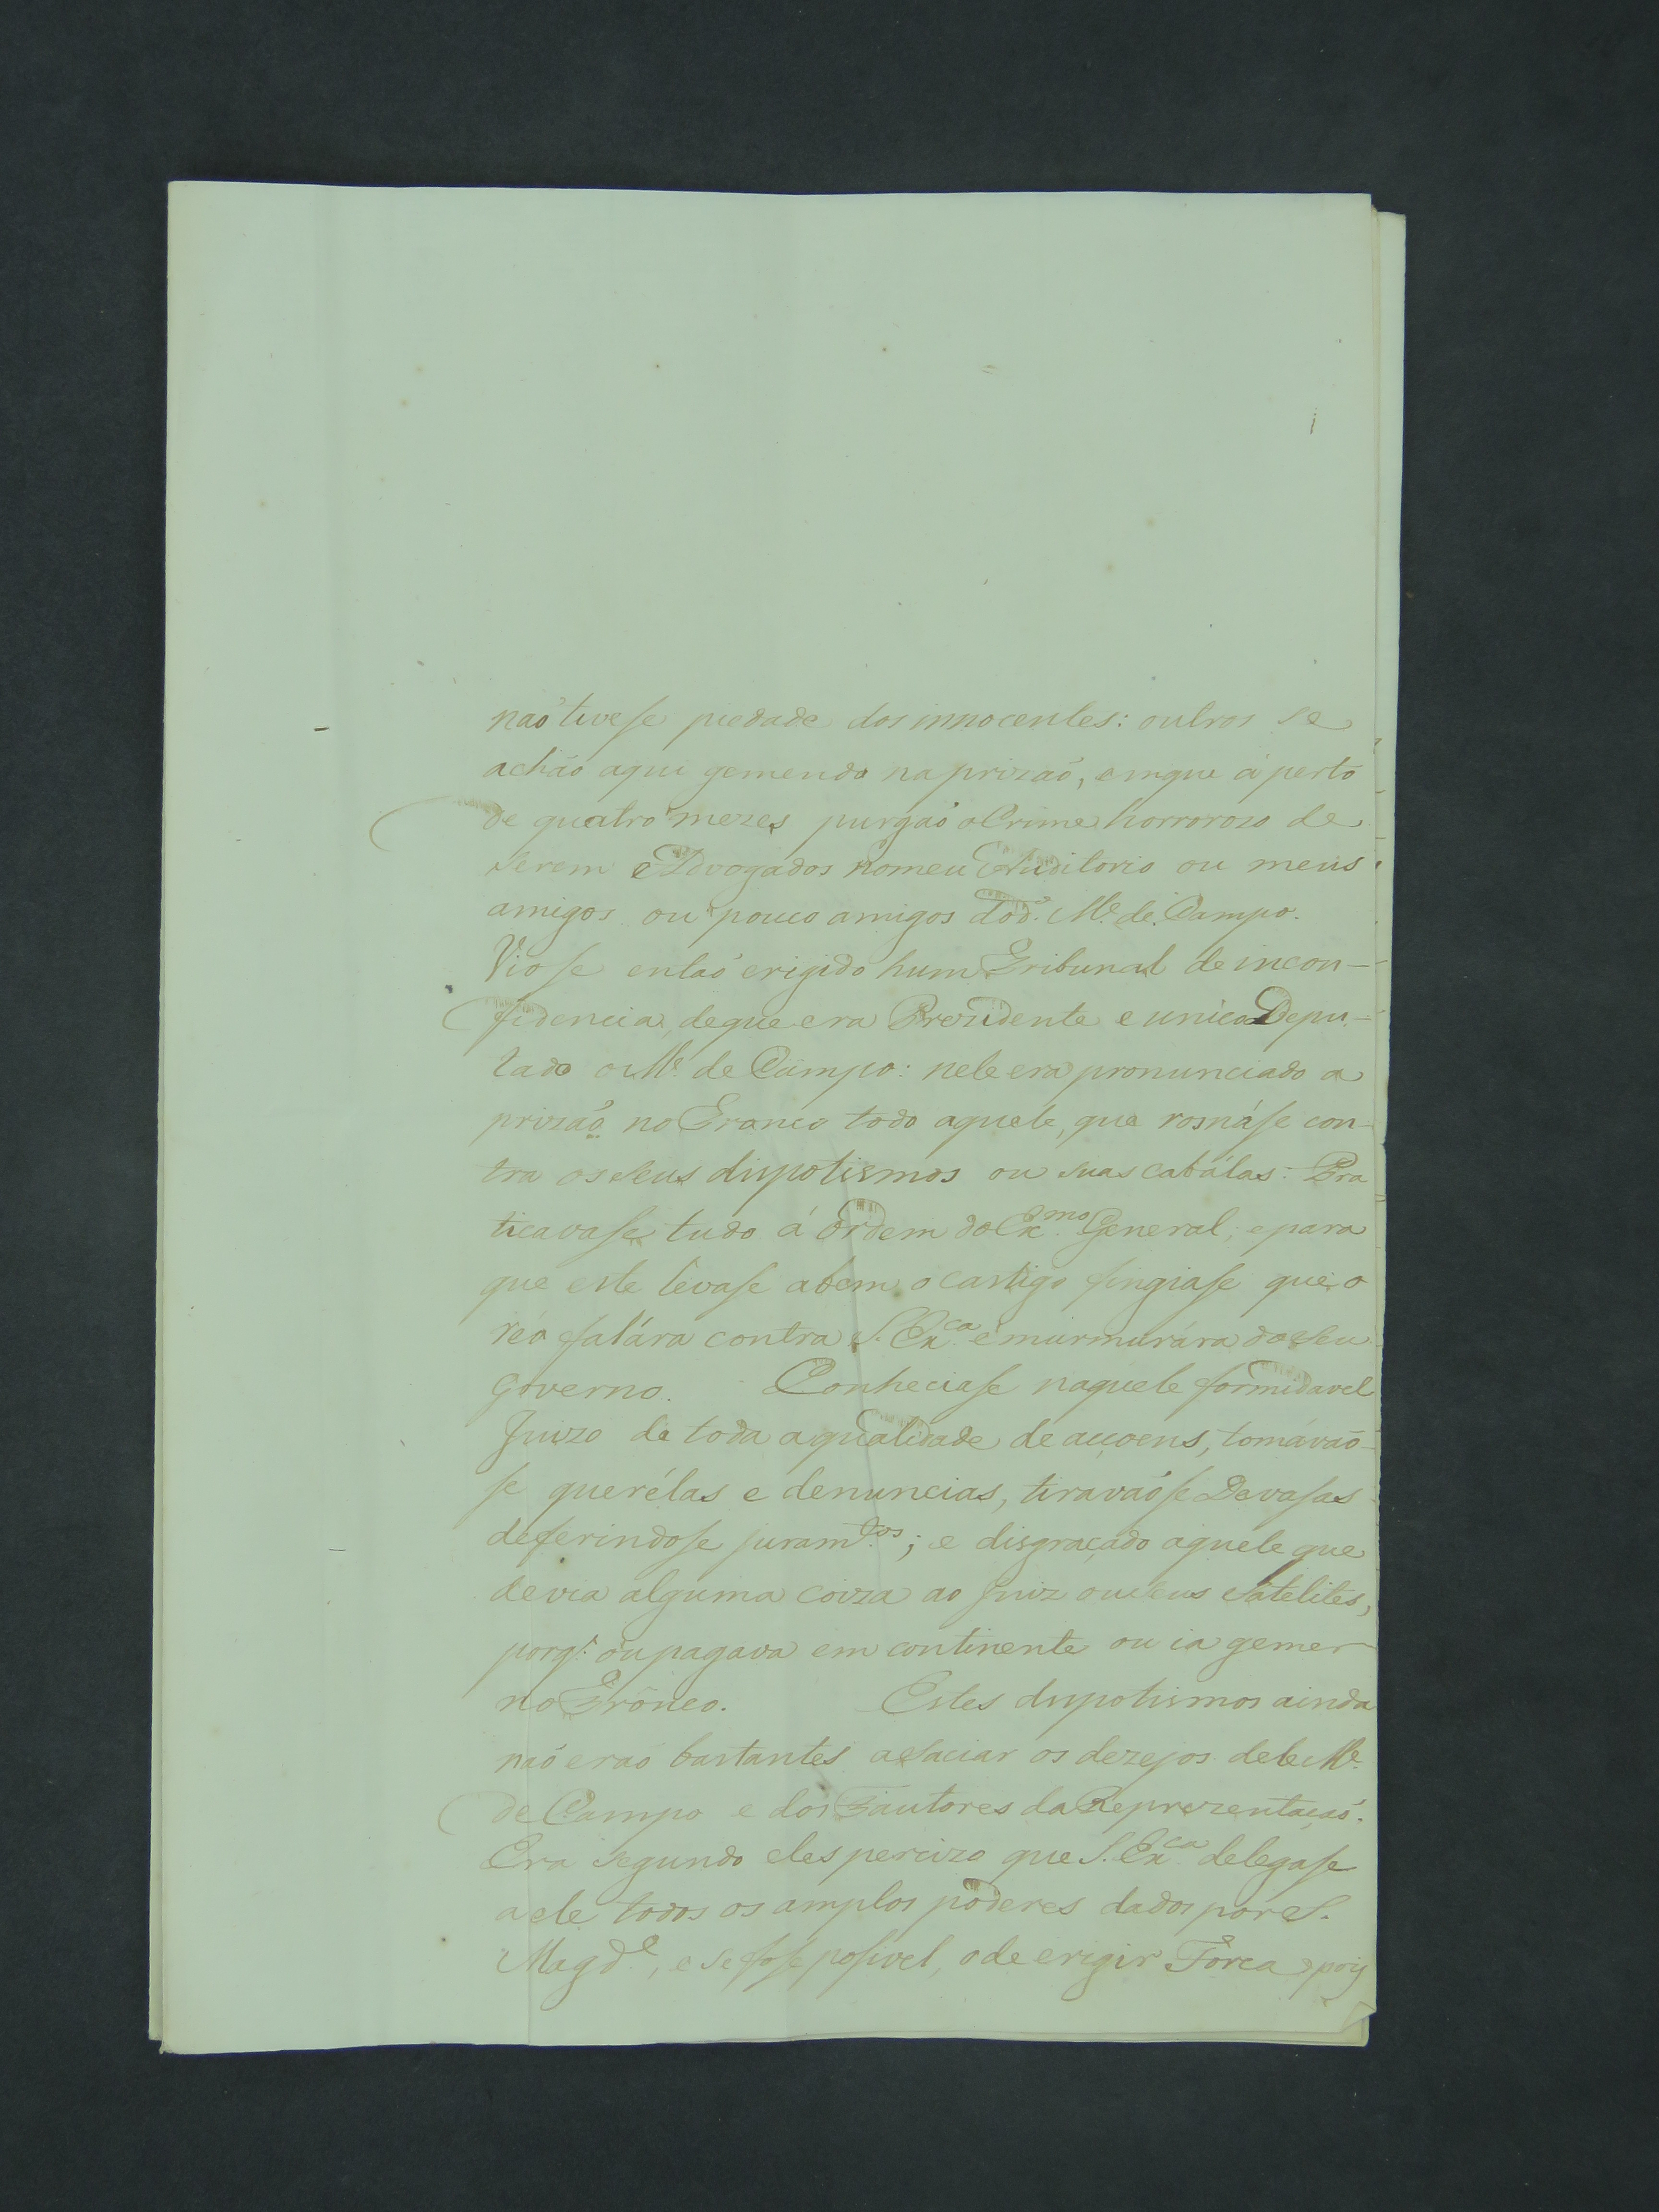 naõ tivese piedade dos innocentes: outros se
achão aqui gemendo na prizaõ, em que á perto
de quatro mezes purgaõ o Crime horrorozo de
serem Advogados no meu Auditorio ou meus
amigos ou pouco amigos do d.º M.e de Campo.
Viose entaõ erigido hum Tribunal de incon-
fidencia, de que era Prezidente e unico Depu-
tado o M.e de Campo: nele era pronunciado a
prizaõ no Tronco todo aquele, que rosnáse con-
tra os seus dispotismos ou suas cabálas: Pra
ticavase tudo á ordem do Ex.mo General, e para
que este levase a bem o castigo fingiase que o
réo falára contra S. Ex.ca e murmurára do seu
Governo. Conheciase naquele formidavel
Juizo de toda a qualidade de acçoens, tomávaõ-
se querélas e denuncias, tiravaõse Devasas
deferindose juram.tos; e disgraçado aquele que
devia alguma coiza ao Juiz ou seus Satelites,
porq.' ou pagava em continente ou ia gemer
no Trônco. Estes dispotismos ainda
naõ eraõ bastantes a saciar os dezejos dele M.e
de Campo e dos Fautores da Reprezentaçaõ.
Era segundo eles percizo que S. Ex.ca delegase
a ele todos os amplos poderes dados por S.
Magd.e, e se fose posivel, o de erigir Forca, pois